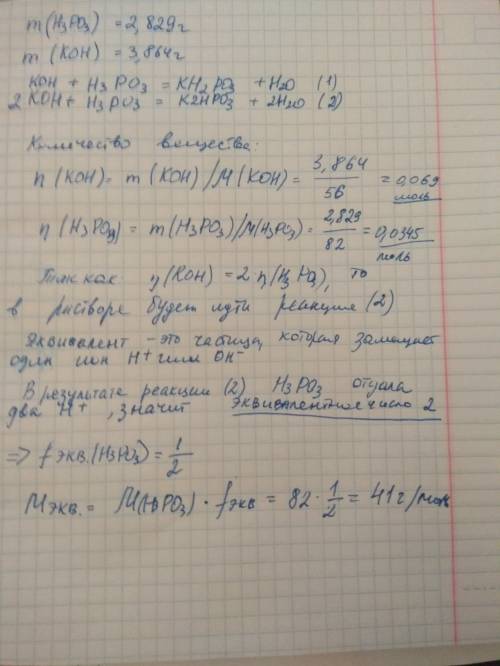 m(H3PO3) = 2,829г
m (KOH) = 3,864г
KOH + H3PO3 = KH2PO3 + H2O (1)
2KOH + H3PO3 = K2HPO3 + 2H2O (2)
Количество вещества:
n (KOH) = m (KOH) / M (KOH) = 3,864/56 = 0,069 моль
η (H3PO3) = m(H3PO3)/M(H3PO3) = 2,829/82 = 0,0345 моль
Так как η(KOH) = 2·η(H3PO3), то
в растворе будет идти реакция (2)
Эквивалент - это частица, которая замещает
один ион H+ или OH-
В результате реакции (2) H3PO3 отдала
два H+, значит эквивалентное число 2
=> f экв.(H3PO3) = 1/2
Mэкв. = M(H3PO3) · fэкв = 82 · 1/2 = 41 г/моль